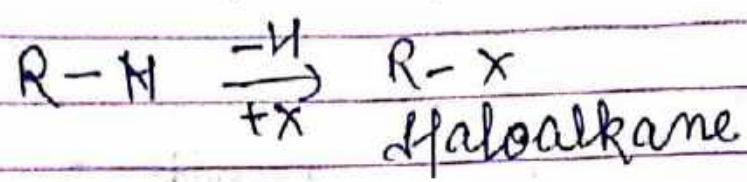 -H
R-H → R-X
+X
Haloalkane